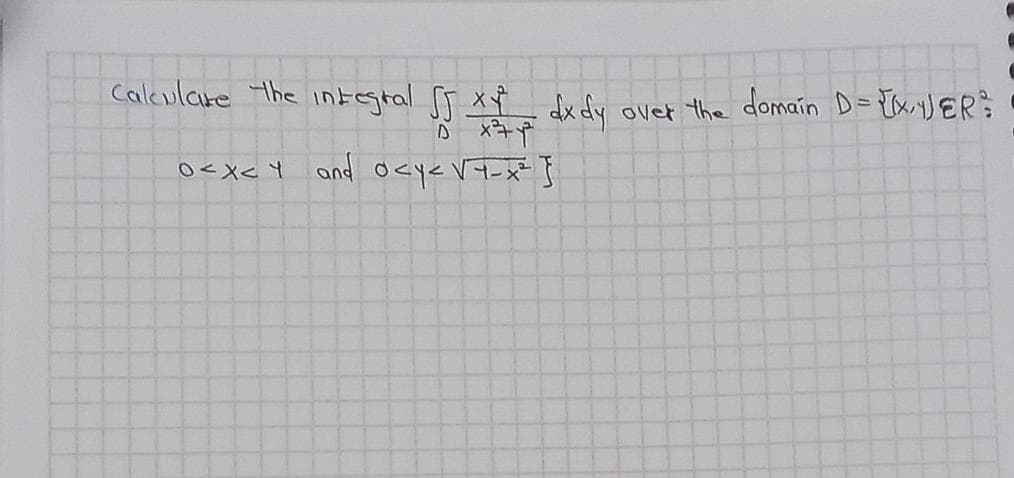 Calculate the integral ∬_D xy²/(x²+y²) dxdy over the domain D = {(x,y) ∈ R²:
0 < x < 1 and 0 < y < √(1-x²) }